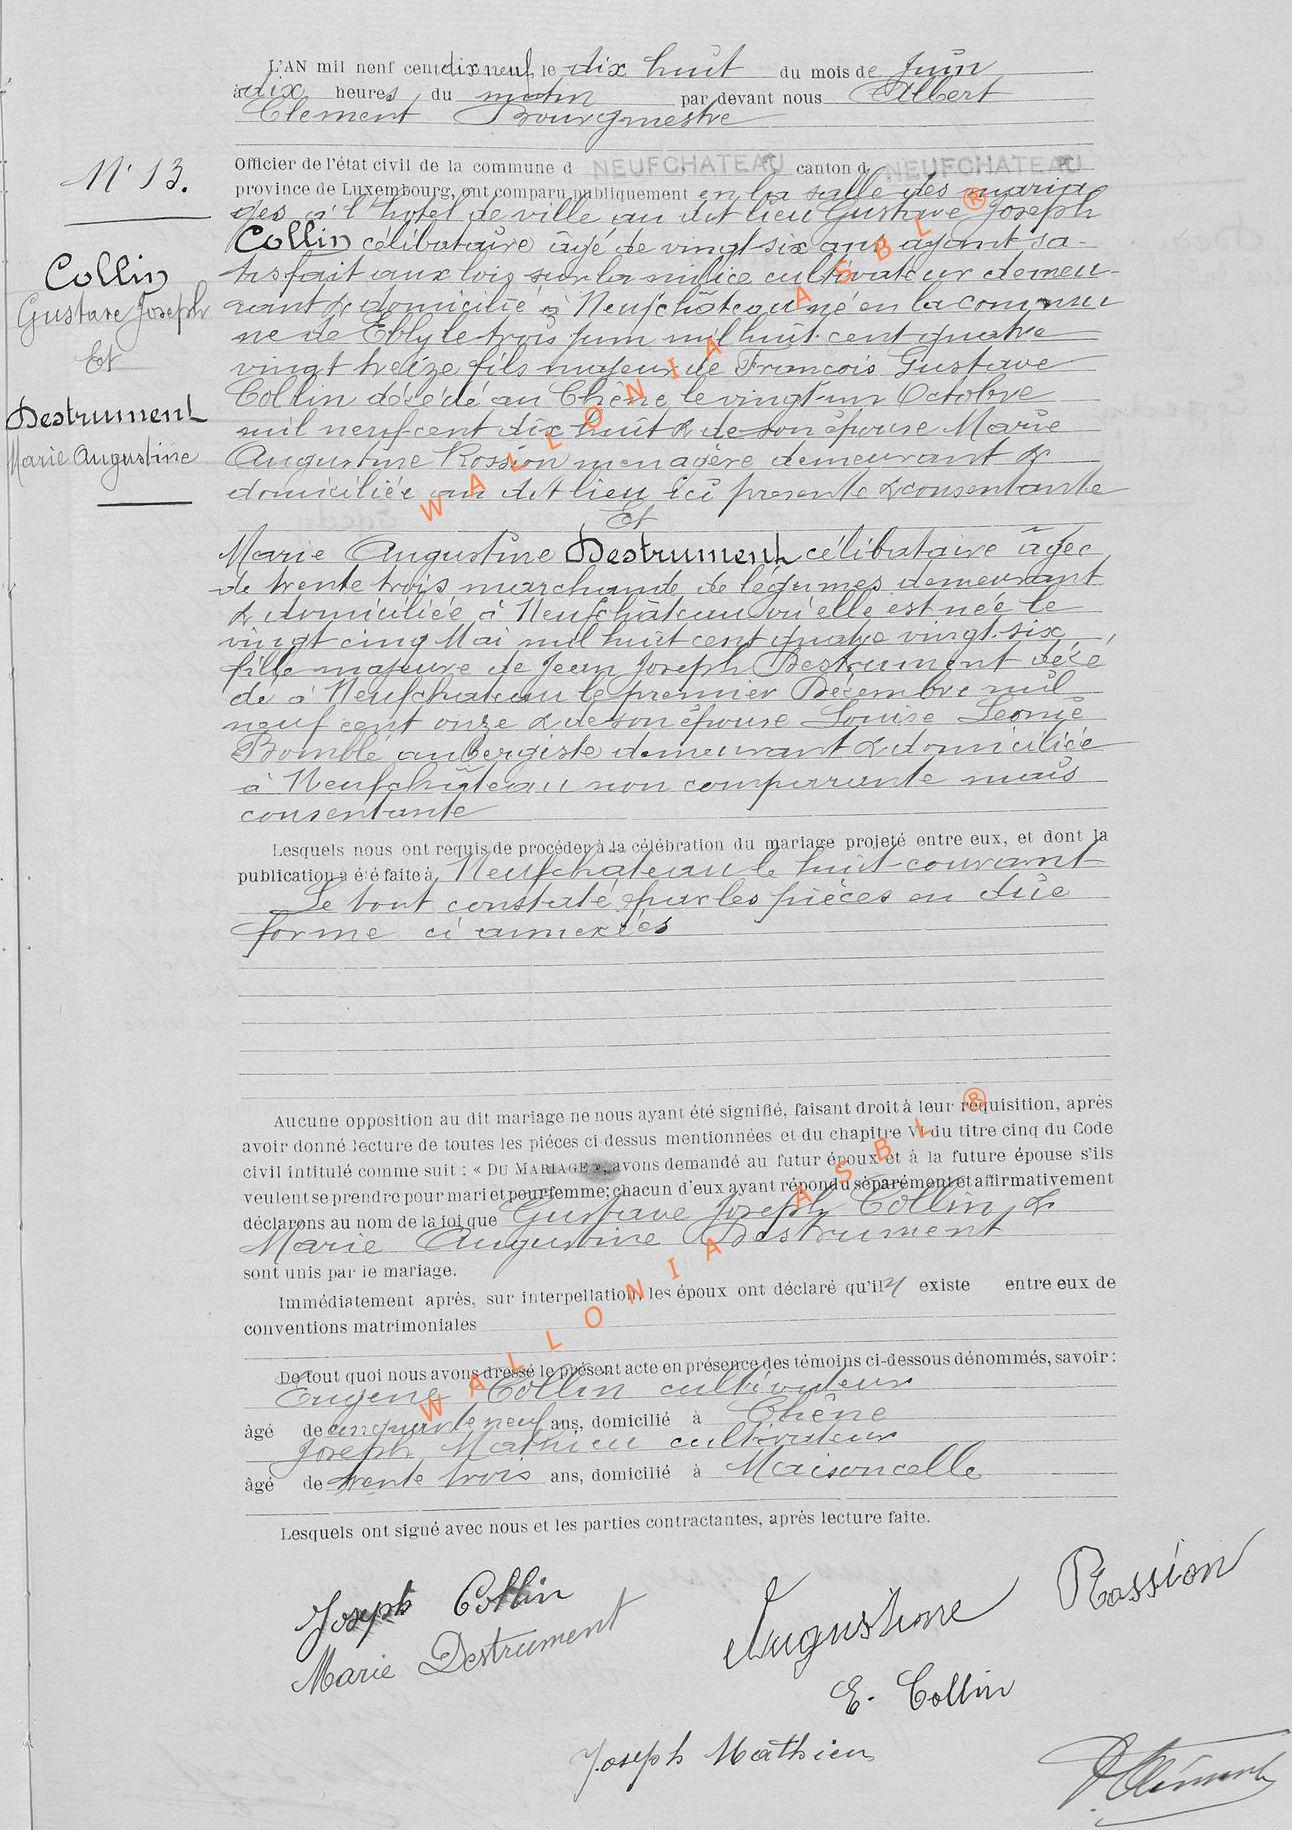 L'AN mil neuf cent dix neuf, le dix huit du mois de Juin
à dix heures du matin par devant nous Albert
Clement Bourgmestre
Officier de l'état civil de la commune d NEUFCHATEAU canton d NEUFCHATEAU
N° 13.
province de Luxembourg, ont comparu publiquement en la salle des maria
ges à l'hotel de ville au dit lieu Gustave Joseph
Collin célibataire âgé de vingt-six ans ayant sa-
tisfait aux lois sur la milice cultivateur demeu-
rant & domicilié à Neufchâteau né en la commu
ne de Ebly le trois juin mil huit cent quatre
vingt treize fils majeur de Francois Gustave
Collin décédé au Chêne le vingt-un Octobre
mil neuf cent dix huit & de son épouse Marie
Augustine Rossion menagère demeurant &
domiciliée au dit lieu ici presente & consentante
Collin
Gustave Joseph
Et
Destrument
Marie Augustine
Et
Marie Augustine Destrument célibataire âgée
de trente trois marchande de légumes demeurant
& domiciliée à Neufchâteau où elle est née le
vingt cinq Mai mil huit cent quatre vingt-six
fille majeure de Jean Joseph Destrument décé
dé à Neufchateau le premier Décembre mil
neuf cent onze & de son épouse Louise Léonie
Bomblé aubergiste demeurant & domiciliée
à Neufchâteau non comparante mais
consentante
Lesquels nous ont requis de procéder à la célébration du mariage projeté entre eux, et dont la
publication a été faite à Neufchâteau le huit courant
Le tout constaté par les pièces en dûe
forme ci annexées
Aucune opposition au dit mariage ne nous ayant été signifié, faisant droit à leur réquisition, après
avoir donné lecture de toutes les pièces ci dessus mentionnées et du chapitre VI du titre cinq du Code
civil intitulé comme suit : « DU MARIAGE », avons demandé au futur époux et à la future épouse s'ils
veulent se prendre pour mari et pour femme; chacun d'eux ayant répondu séparément et affirmativement
déclarons au nom de la loi que Gustave Joseph Collin &
Marie Augustine Destrument
sont unis par le mariage.
Immédiatement après, sur interpellation, les époux ont déclaré qu'il existe entre eux de
conventions matrimoniales
De tout quoi nous avons dressé le présent acte en présence des témoins ci-dessous dénommés, savoir :
Eugène Collin cultivateur
âgé de cinquante neuf ans, domicilié à Chêne
Joseph Mathieu cultivateur
âgé de trente trois ans, domicilié à Maisoncelle
Lesquels ont signé avec nous et les parties contractantes, après lecture faite.
Joseph Collin
Augustine Rossion
Marie Destrument
E. Collin
Joseph Mathieu
Clément
WALLONIA ASBL ®
WALLONIA ASBL ®